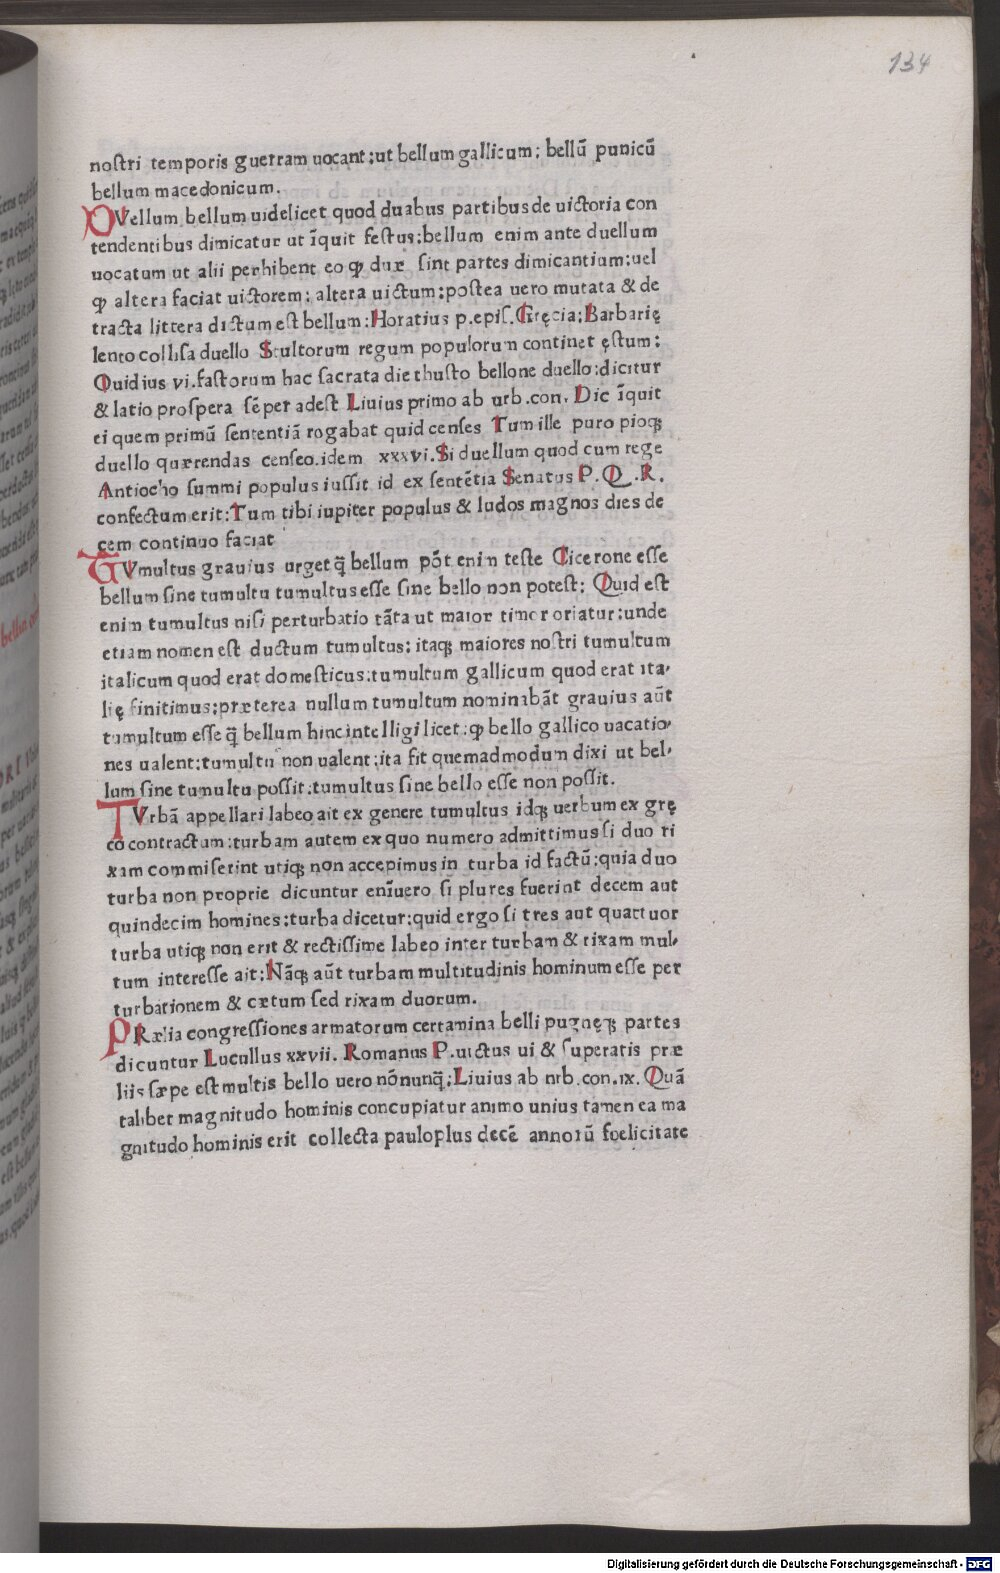 134
nostri temporis guerram uocant:ut bellum gallicum: bellū punicū
bellum macedonicum.
DVellum bellum uidelicet quod duabus partibus de uictoria con
tendentibus dimicatur ut īquit festus:bellum enim ante duellum
uocatum ut alii perhibent eo ꝙ duæ sint partes dimicantium:uel
ꝙ altera faciat uictorem: altera uictum:postea uero mutata & de
tracta littera dictum est bellum:Horatius p.epis.Gręcia:Barbarię
lento collisa duello Stultorum regum populorum continet ęstum:
Ouidius vi.fastorum hac sacrata die thusto bellone duello:dicitur
& latio prospera sēper adest Liuius primo ab urb.con. Dic īquit
ei quem primū sententiā rogabat quid censes Tum ille puro pioqꝫ
duello quærendas censeo.idem xxxvi.Si duellum quod cum rege
Antiocho summi populus iussit id ex sentētia Senatus P.Q.R.
confectum erit:Tum tibi iupiter populus & ludos magnos dies de
cem continuo faciat
TVmultus grauius urget q̄ bellum pōt enin teste Cicerone esse
bellum sine tumultu tumultus esse sine bello non potest: Quid est
enim tumultus nisi perturbatio tāta ut maior timor oriatur:unde
etiam nomen est ductum tumultus: itaqꝫ maiores nostri tumultum
italicum quod erat domesticus:tumultum gallicum quod erat ita,
lię finitimus:præterea nullum tumultum nominabāt grauius aūt
tumultum esse q̄ bellum hinc intelligi licet:ꝙ bello gallico uacatio,
nes ualent:tumultu non ualent:ita fit quemadmodum dixi ut bel,
lum sine tumultu possit:tumultus sine bello esse non possit.
TVrbā appellari labeo ait ex genere tumultus idqꝫ uerbum ex grę
co contractum:turbam autem ex quo numero admittimus si duo ri
xam commiserint utiqꝫ non accepimus in turba id factū:quia duo
turba non proprie dicuntur enīuero si plures fuerint decem aut
quindecim homines:turba dicetur:quid ergo si tres aut quartuor
turba utiqꝫ non erit & rectissime labeo inter turbam & rixam mul,
tum interesse ait:Nāqꝫ aūt turbam multitudinis hominum esse per
turbationem & cætum sed rixam duorum.
PRælia congressiones armatorum certamina belli pugnęqꝫ partes
dicuntur Lucullus xxvii. Romanus P.uictus ui & superatis præ
liis sæpe est multis bello uero nōnunq̄:Liuius ab urb.con.ix. Quā
talibet magnitudo hominis concupiatur animo unius tamen ea ma
gnitudo hominis erit collecta pauloplus decē annorū foelicitate
Digitalisierung gefördert durch die Deutsche Forschungsgemeinschaft - DFG